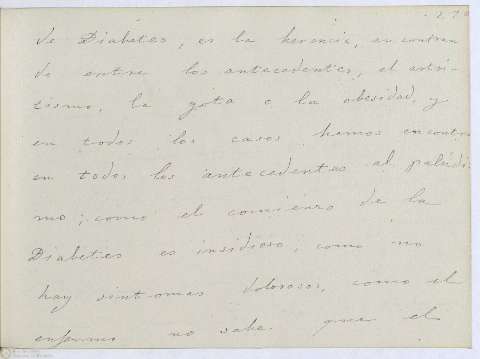 de Diabetes, es la herencia, encontran
do entre los antecedentes, el artri-
tismo, la gota o la obesidad, y
en todos los casos hemos encontra
en todos los antecedentes al paludis
mo; como el comienzo de la
Diabetes es insidioso, como no
hay sintomas dolorosos, como el
enfermo no sabe que el